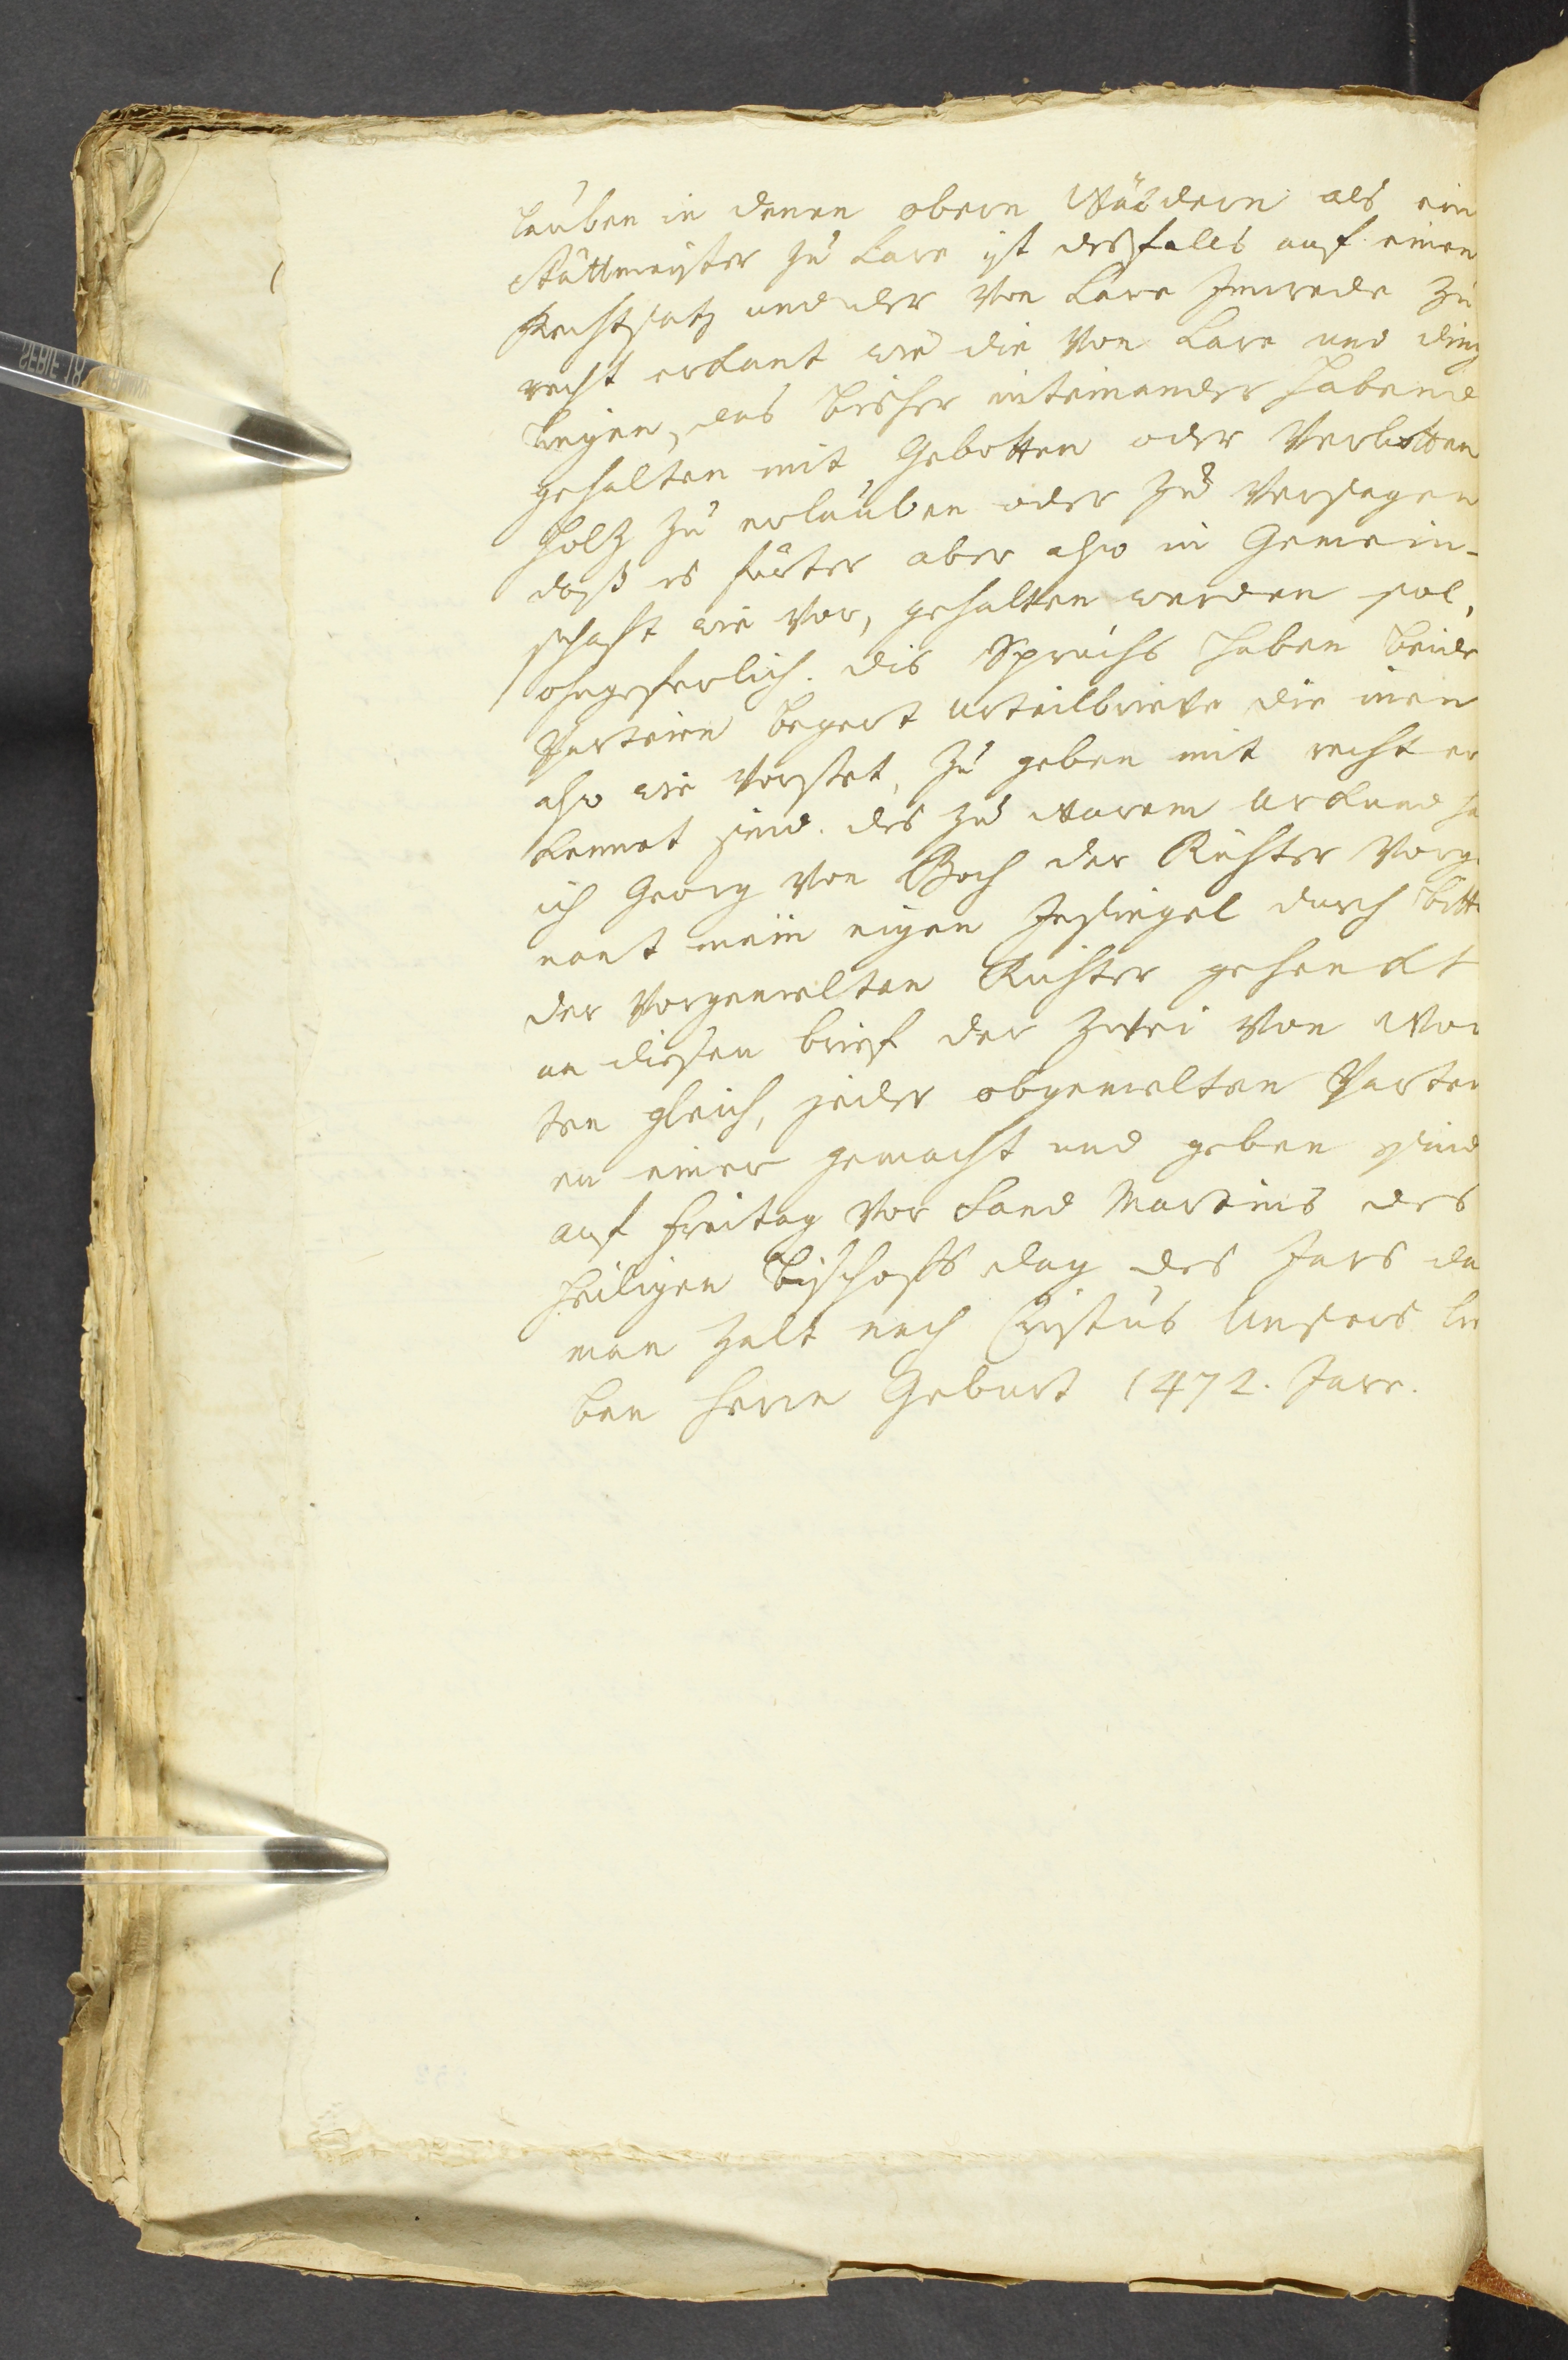 lauben in denen obern Wäldern als ein
Stättmeister zu Lare ist desfals auf einen
Rechtsatz und der von Lare Inrede zu
recht erkant wie die von Lare und
legen, das bisher miteinander habend
gehalten mit Gebotten oder Verbotten
Holz zu erlauben oder zu versagen
daß es fürter aber also in Gemein-
schaft wie vor, gehalten werden sol,
ohngeferlich. dis Spruchs haben beide
Parteien begert Urteilbrieve die inen
also wie vorstet, zu geben mit recht er
kennet sind. des zu warem Urkund ha
ich Georg von Bach der Richter vorge
nant mein eigen Insiegel durch bitt
der vorgemelten Richter gehenckt
an diesen brief der zwei von Wor
ten gleich, jeder obgemelten Partei
en einer gemacht und geben sind
auf Freitag vor Sand Martins des
heiligen Bischofs dag des Jars da
man zalt nach Cristus Unsers lie
ben Herrn Geburt 1472. Jare.